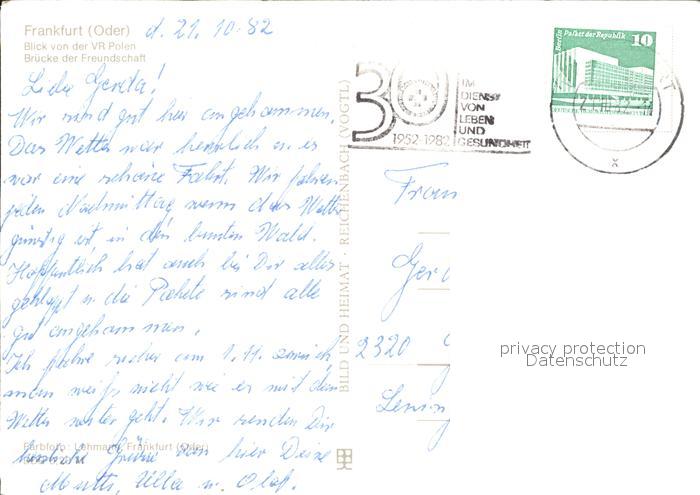 Frankfurt (Oder) d. 21. 10. 82
Blick von der VR Polen
Brücke der Freundschaft
Liebe Gerda!
Wir sind gut hier angekommen,
Das Wetter war herrlich u. es
war eine schöne Fahrt. Wir fahren
jeden Nachmittag wenn das Wetter
günstig ist, in den bunten Wald.
Hoffentlich hat auch bei Dir alles
geklappt u. die Pakete sind alle
gut angekommen.
Ich fahre sicher am 1.11. zurück,
man weiß nicht wie es mit dem
Wetter weiter geht. Wir senden Dir
herzliche Grüße von hier Deine
Mutti, Ulla u. Olaf.
Farbfoto: Lehmann, Frankfurt (Oder)
BILD UND HEIMAT · REICHENBACH (VOGTL)
30
1952-1982
IM
DIENST
VON
LEBEN
UND
GESUNDHEIT
Berlin Palast der Republik 10
x
Frau
Ger
2320
Lenin
privacy protection
Datenschutz